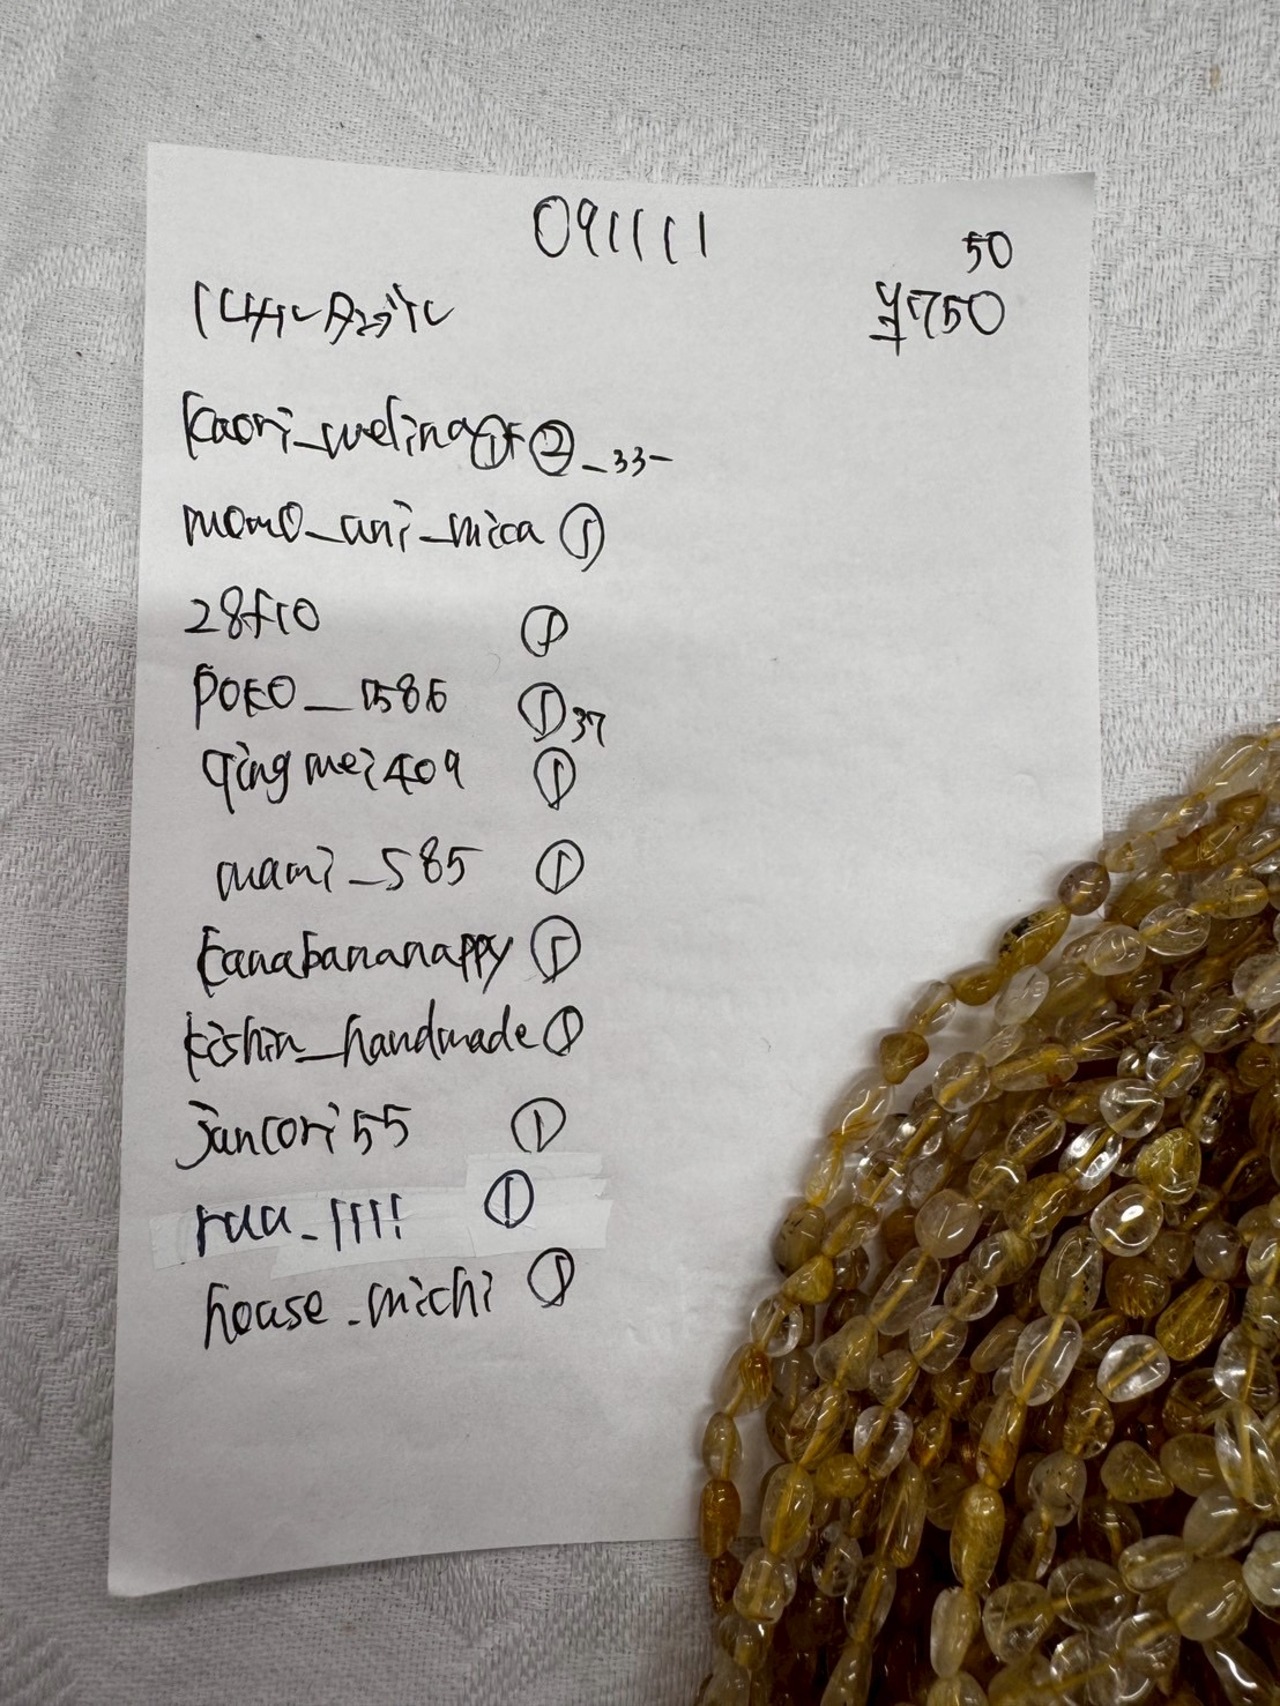 091111
50
¥1750
kaori_welina ① + ② _33-
momo_ani_mica ①
28f10 ①
poko_1586 ① 37
qingmei409 ①
mami_585 ①
kanabananappy ①
kishin_handmade ①
jancori55 ①
raa_1111 ①
house_michi ①